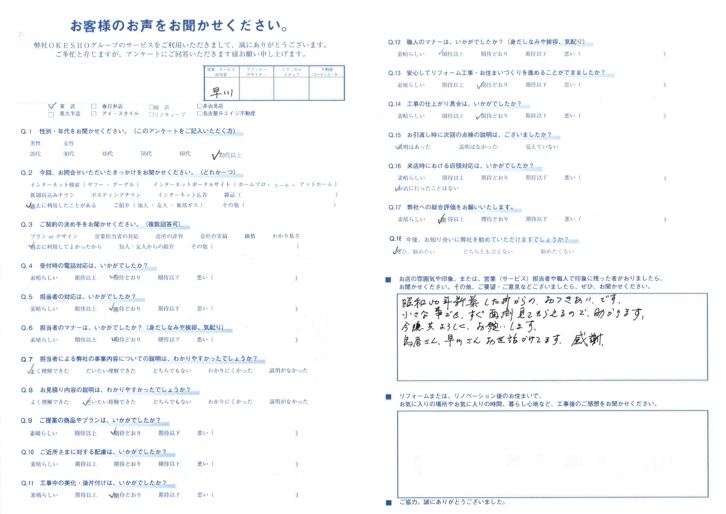 お客様のお声をお聞かせください。
弊社OKESHOグループのサービスをご利用いただきまして、誠にありがとうございます。
ご多忙と存じますが、アンケートにご回答いただきます様お願い申し上げます。
営業・サービス担当者 プランナーデザイナー
早川
東店 春日井店 多治見店
長久手店 アイ・スタイル リノキューブ 名古屋ロエイジ不動産
Q.1 性別・年代をお聞かせください。(このアンケートをご記入いただく方)
男性 女性
20代 30代 40代 50代 60代 70代以上
Q.2 今回、お問合せいただいたきっかけをお聞かせください。(どれか一つ)
インターネット検索(ヤフー・グーグル) インターネットポータルサイト(ホームプロ・スーモ・アットホーム)
新聞折込みチラシ ポスティングチラシ インターネット広告 雑誌( )
過去に利用したことがある ご紹介(知人・友人・東邦ガス) その他( )
Q.3 ご契約の決め手をお聞かせください。(複数回答可)
プラン or デザイン 営業担当者の対応 近所の評判 会社の実績 価格 わかり易さ
過去に利用してよかったから 知人・友人からの紹介 その他( )
Q.4 受付時の電話対応は、いかがでしたか?
素晴らしい 期待以上 期待どおり 期待以下 悪い( )
Q.5 担当者の対応は、いかがでしたか?
素晴らしい 期待以上 期待どおり 期待以下 悪い( )
Q.6 担当者のマナーは、いかがでしたか?(身だしなみや挨拶、気配り)
素晴らしい 期待以上 期待どおり 期待以下 悪い( )
Q.7 担当者による弊社の事業内容についての説明は、わかりやすかったでしょうか?
よく理解できた だいたい理解できた どちらでもない わかりにくかった 説明がなかった
Q.8 お見積り内容の説明は、わかりやすかったでしょうか?
よく理解できた だいたい理解できた どちらでもない わかりにくかった 説明がなかった
Q.9 ご提案の商品やプランは、いかがでしたか?
素晴らしい 期待以上 期待どおり 期待以下 悪い( )
Q.10 ご近所さまに対する配慮は、いかがでしたか?
素晴らしい 期待以上 期待どおり 期待以下 悪い( )
Q.11 工事中の美化・後片付けは、いかがでしたか?
素晴らしい 期待以上 期待どおり 期待以下 悪い( )
Q.12 職人のマナーは、いかがでしたか?(身だしなみや挨拶、気配り)
素晴らしい 期待以上 期待どおり 期待以下 悪い( )
Q.13 安心してリフォーム工事・お住まいづくりを進めることができましたか?
素晴らしい 期待以上 期待どおり 期待以下 悪い( )
Q.14 工事の仕上がり具合は、いかがでしたか?
素晴らしい 期待以上 期待どおり 期待以下 悪い( )
Q.15 お引渡し時に次回の点検の説明は、ございましたか?
説明はあった 説明はなかった 覚えていない
Q.16 来店時における店頭対応は、いかがでしたか?
素晴らしい 期待以上 期待どおり 期待以下 悪い( )
お店に行ったことはない
Q.17 弊社への総合評価をお願いします。
素晴らしい 期待以上 期待どおり 期待以下 悪い( )
Q.18 今後、お知り合いに弊社を勧めていただけますでしょうか?
ぜひ、勧めたい どちらとも言えない 勧めたくない
■ お店の雰囲気や印象、または、営業(サービス)担当者や職人で印象に残った者がおりましたら、
お聞かせください。その他、ご要望・ご意見などございましたら、ぜひ、お聞かせください。
昭和60年新築した所からの、おつきあいです。
小さな事でも、すぐ面倒見てもらえるので、助かります。
今後共よろしく、お願いします。
鳥居さん、早川さんお世話かけてます。感謝。
■ リフォームまたは、リノベーション後のお住まいで、
お気に入りの場所やお気に入りの時間、暮らし心地など、工事後のご感想をお聞かせください。
■ ご協力、誠にありがとうございました。